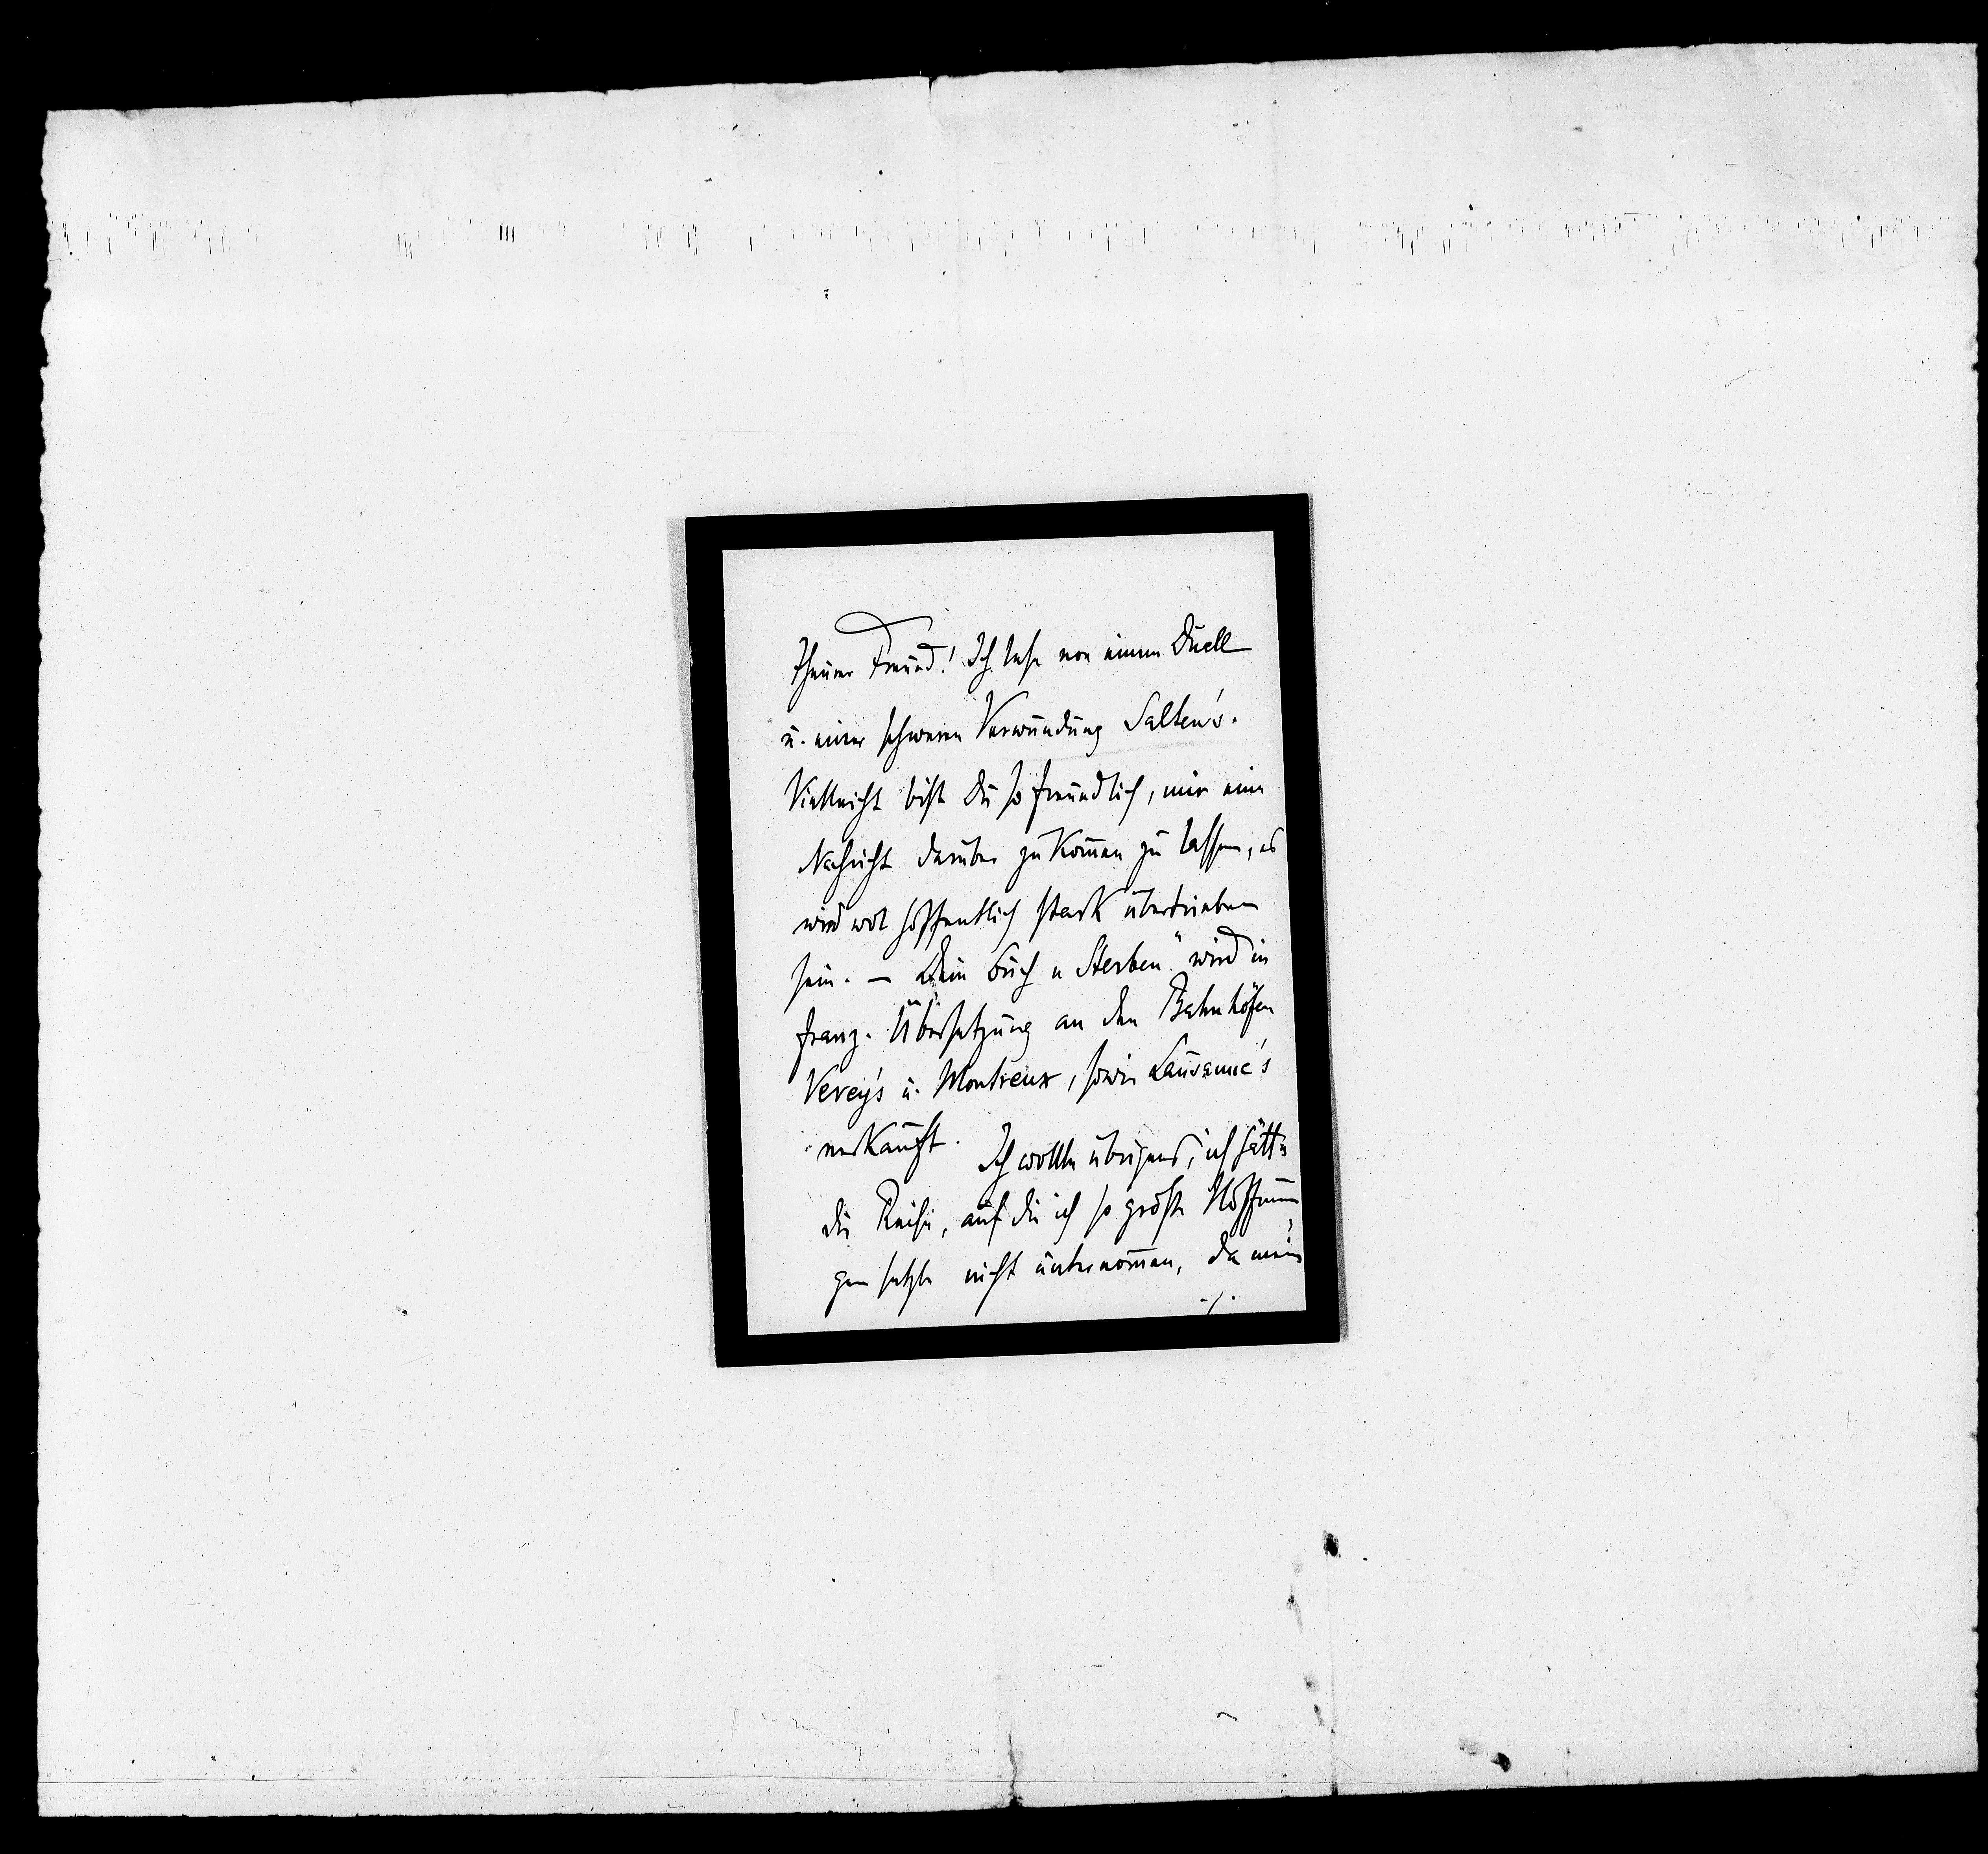 Theurer Freund! Ich lese von einem Duell
u. einer schweren Verwundung Salten's.
Vielleicht bist Du so freundlich, mir eine
Nachricht darüber zukom̅en zu lassen, es
wird wol hoffentlich stark übertrieben
sein. – Dein Buch „Sterben" wird in
franz. Übersetzung an den Bahnhöfen
Vevey's u. Montreux, sowie Lausanne's
verkauft. Ich wollte übrigens, ich hätte
die Reise, auf die ich so große Hoffnun-
gen setzte nicht unternom̅en, da mein
-/.